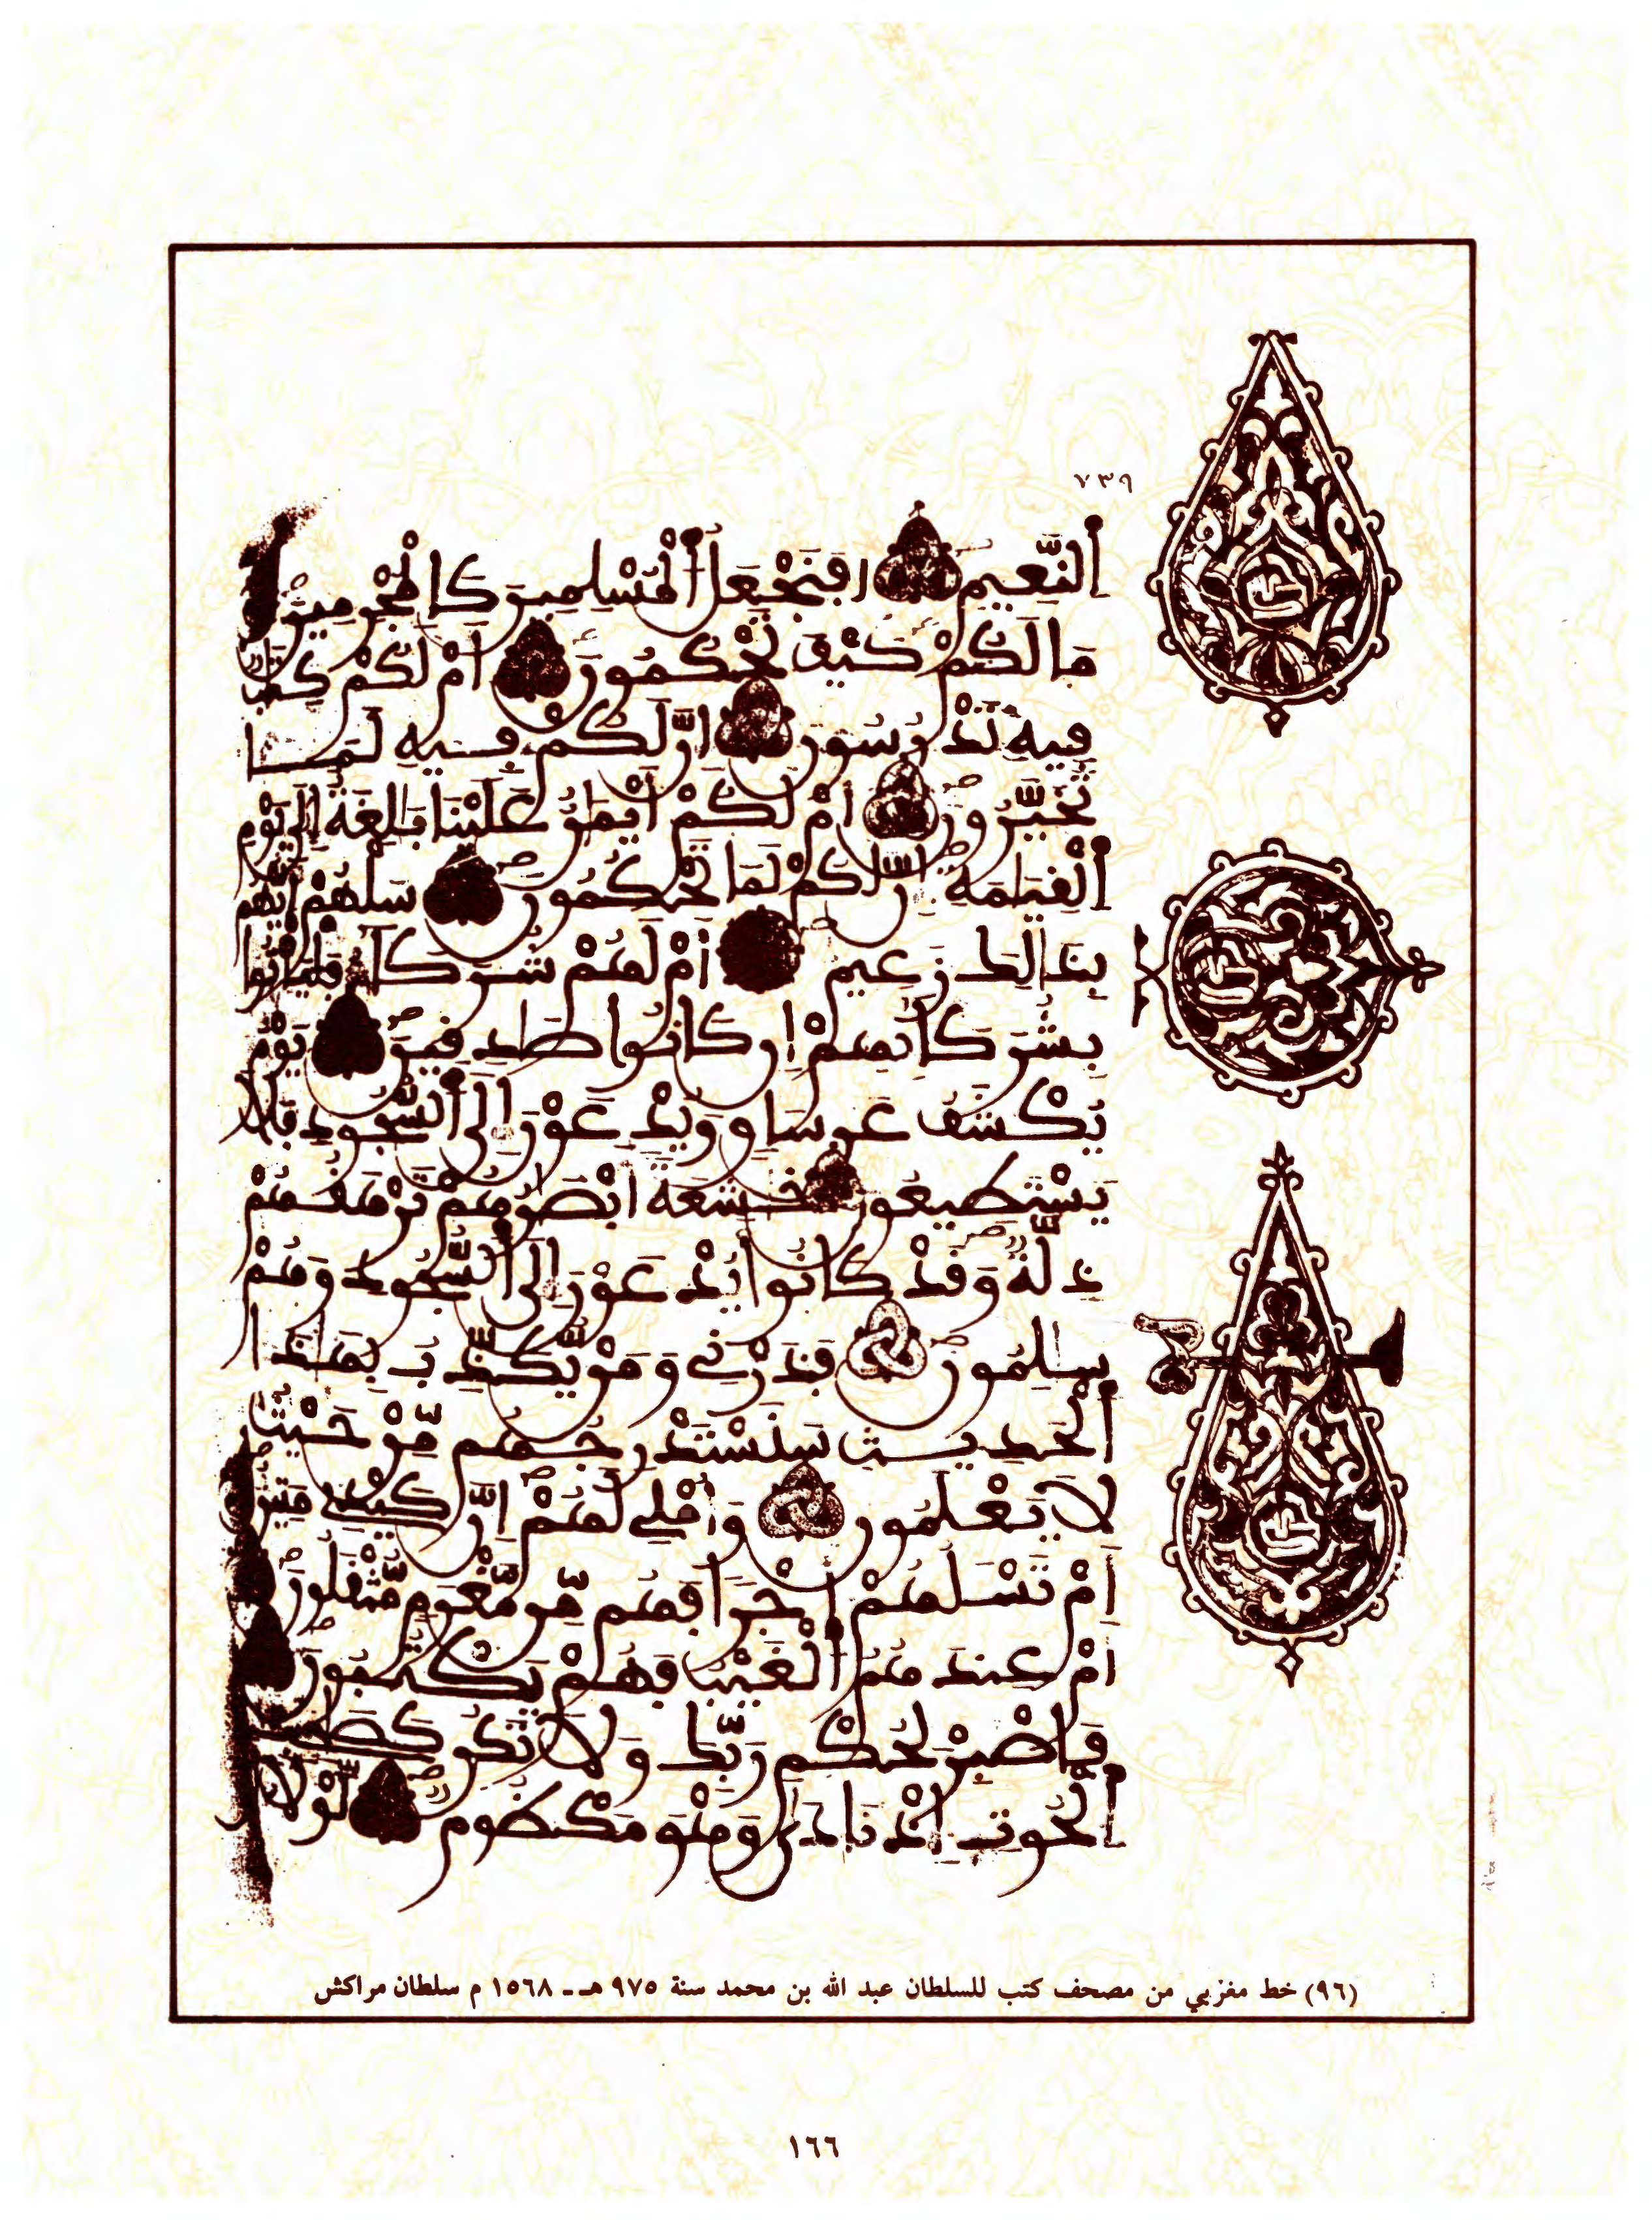 ٧٣٩
اَلنَّعِيمِ اَفَنَجْعَلُ اُ۬لْمُسْلِمِينَ كَالْمُجْرِمِينَ
مَا لَكُمْ كَيْفَ تَحْكُمُونَ أَمْ لَكُمْ كِتَٰبٌ
فِيهِ تَدْرُسُونَ إِنَّ لَكُمْ فِيهِ لَمَا
تَخَيَّرُونَ أَمْ لَكُمْ أَيْمَٰنٌ عَلَيْنَا بَٰلِغَةٌ إِلَىٰ يَوْمِ
اِ۬لْقِيَٰمَةِ إِنَّ لَكُمْ لَمَا تَحْكُمُونَ سَلْهُمْ أَيُّهُم
بِذَٰلِكَ زَعِيمٌ أَمْ لَهُمْ شُرَكَآءُ فَلْيَاتُوا
بِشُرَكَآئِهِمْ إِن كَانُوا صَٰدِقِينَ يَوْمَ
يُكْشَفُ عَن سَاقٍ وَيُدْعَوْنَ إِلَى اَ۬لسُّجُودِ فَلَا
يَسْتَطِيعُونَ خَٰشِعَةً أَبْصَٰرُهُمْ تَرْهَقُهُمْ
ذِلَّةٌ وَقَدْ كَانُوا يُدْعَوْنَ إِلَى اَ۬لسُّجُودِ وَهُمْ
سَٰلِمُونَ فَذَرْنِي وَمَنْ يُّكَذِّبُ بِهَٰذَا
اَ۬لْحَدِيثِ سَنَسْتَدْرِجُهُم مِّنْ حَيْثُ
لَا يَعْلَمُونَ وَأُمْلِي لَهُمْ إِنَّ كَيْدِي مَتِينٌ
أَمْ تَسْـَٔلُهُمْ أَجْرًا فَهُم مِّن مَّغْرَمٍ مُّثْقَلُونَ
أَمْ عِندَهُمُ اُ۬لْغَيْبُ فَهُمْ يَكْتُبُونَ
فَاصْبِرْ لِحُكْمِ رَبِّكَ وَلَا تَكُن كَصَٰحِبِ
اِ۬لْحُوتِ إِذْ نَادَىٰ وَهُوَ مَكْظُومٌ لَّوْلَا
(٩٦) خط مغربي من مصحف كتب للسلطان عبد الله بن محمد سنة ٩٧٥ هـ ـ ١٥٦٨ م سلطان مراكش
١٦٦